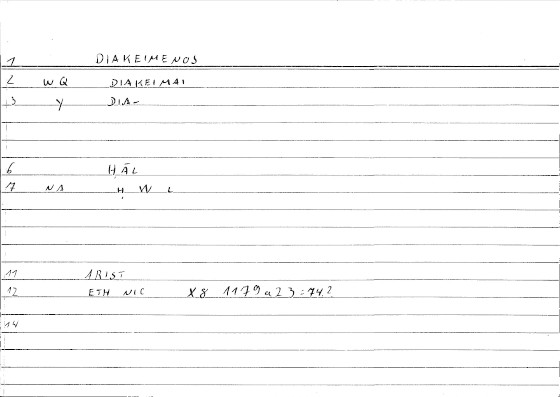 1 DIAKEIMENOS
2 WQ DIAKEIMAI
3 Y DIA-
6 ḤĀL
7 NA Ḥ W L
11 ARIST
12 ETH NIC X8 1179a23:74.2
14